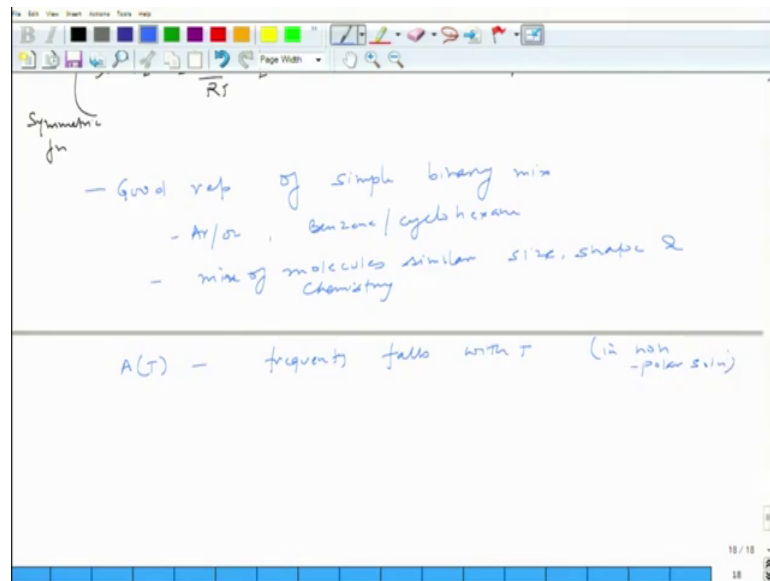 File Edit View Insert Actions Tools Help
B I
Page Width
RT
Symmetric
fn
- Good rep of simple binary mix
- Ar/O2 , Benzene/cyclohexane
- mix of molecules similar size, shape &
chemistry
A(T) - frequently falls with T (in non
-polar soln)
18 / 18
18